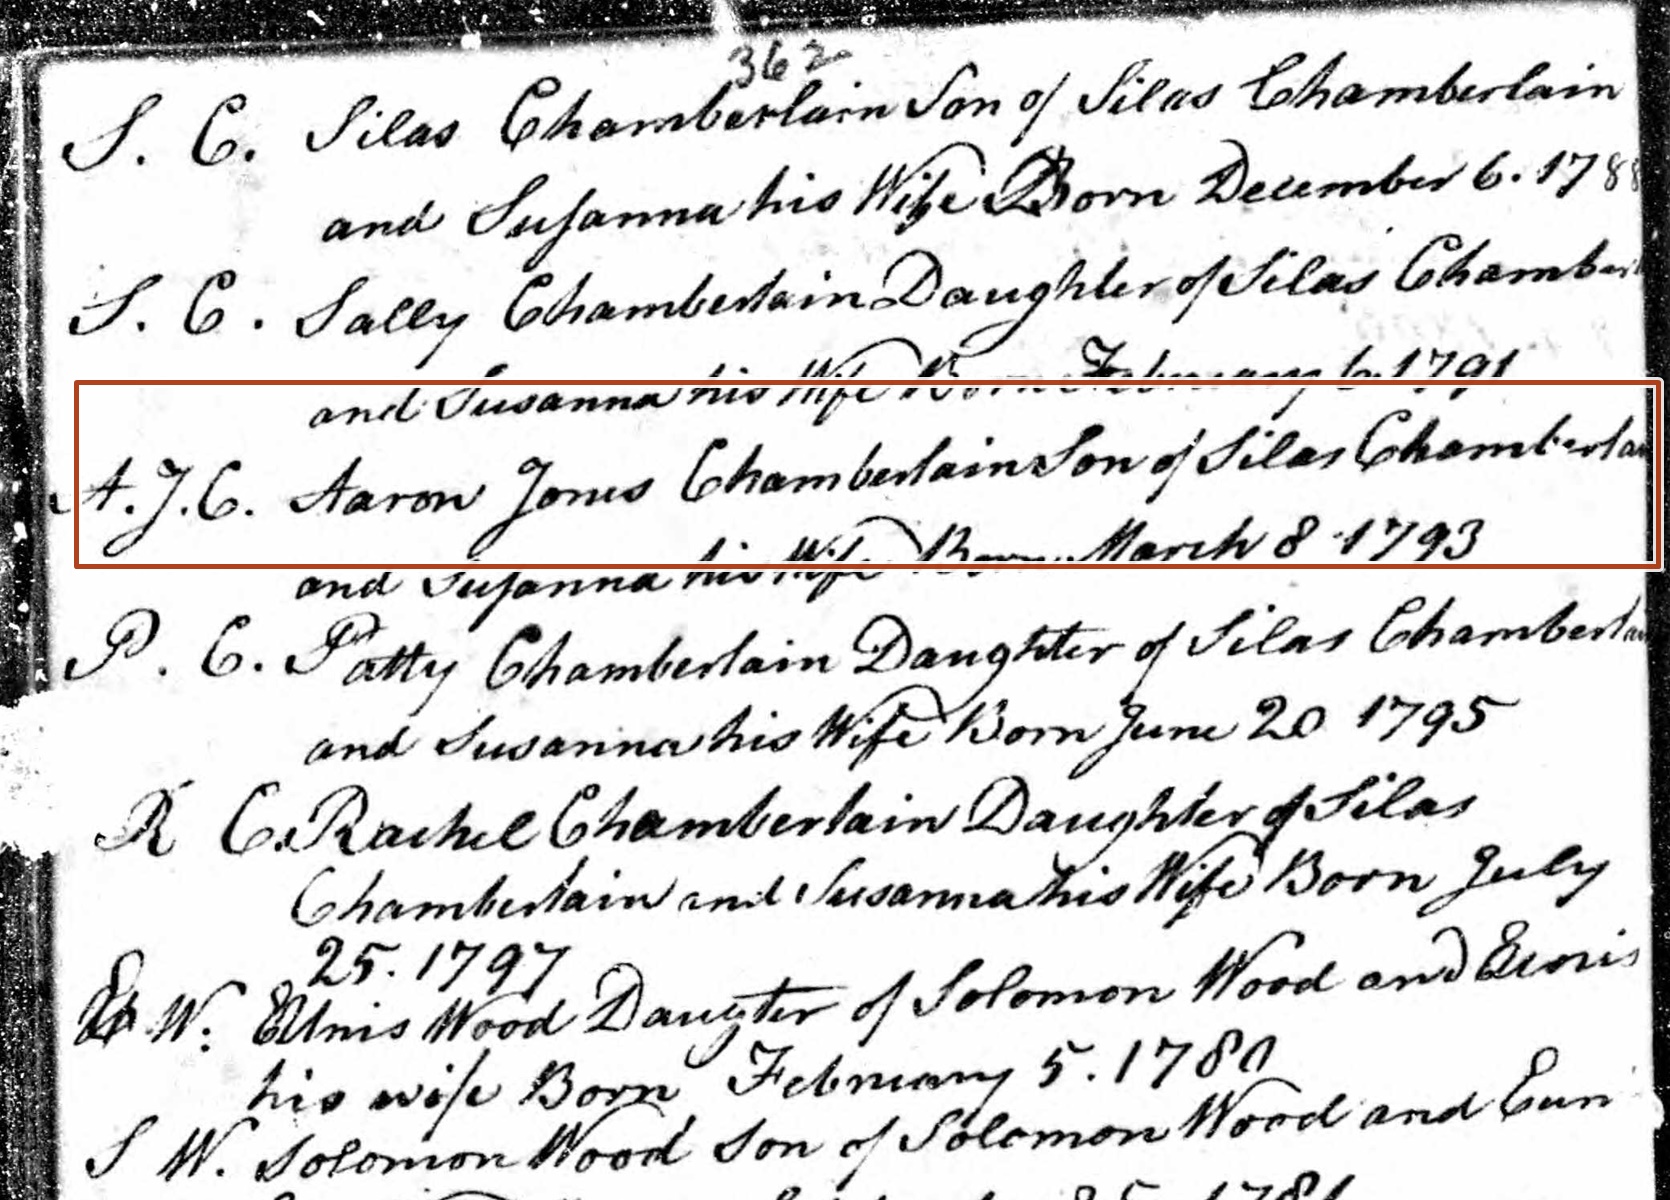 362
S. C. Silas Chamberlain Son of Silas Chamberlain
and Susanna his Wife Born December 6. 1788
S. C. Sally Chamberlain Daughter of Silas Chamber
and Susanna his Wife Born February 6 1791
A. J. C. Aaron Jones Chamberlain Son of Silas Chamberlain
and Susanna his Wife Born March 8 1793
P. C. Patty Chamberlain Daughter of Silas Chamberlain
and Susanna his Wife Born June 20 1795
R C. Rachel Chamberlain Daughter of Silas
Chamberlain and Susanna his Wife Born July
25. 1797
W. Wood Daugter of Solomon Wood and
his wife Born February 5. 1780
S W. Solomon Wood Son of Solomon Wood and Euni
1781